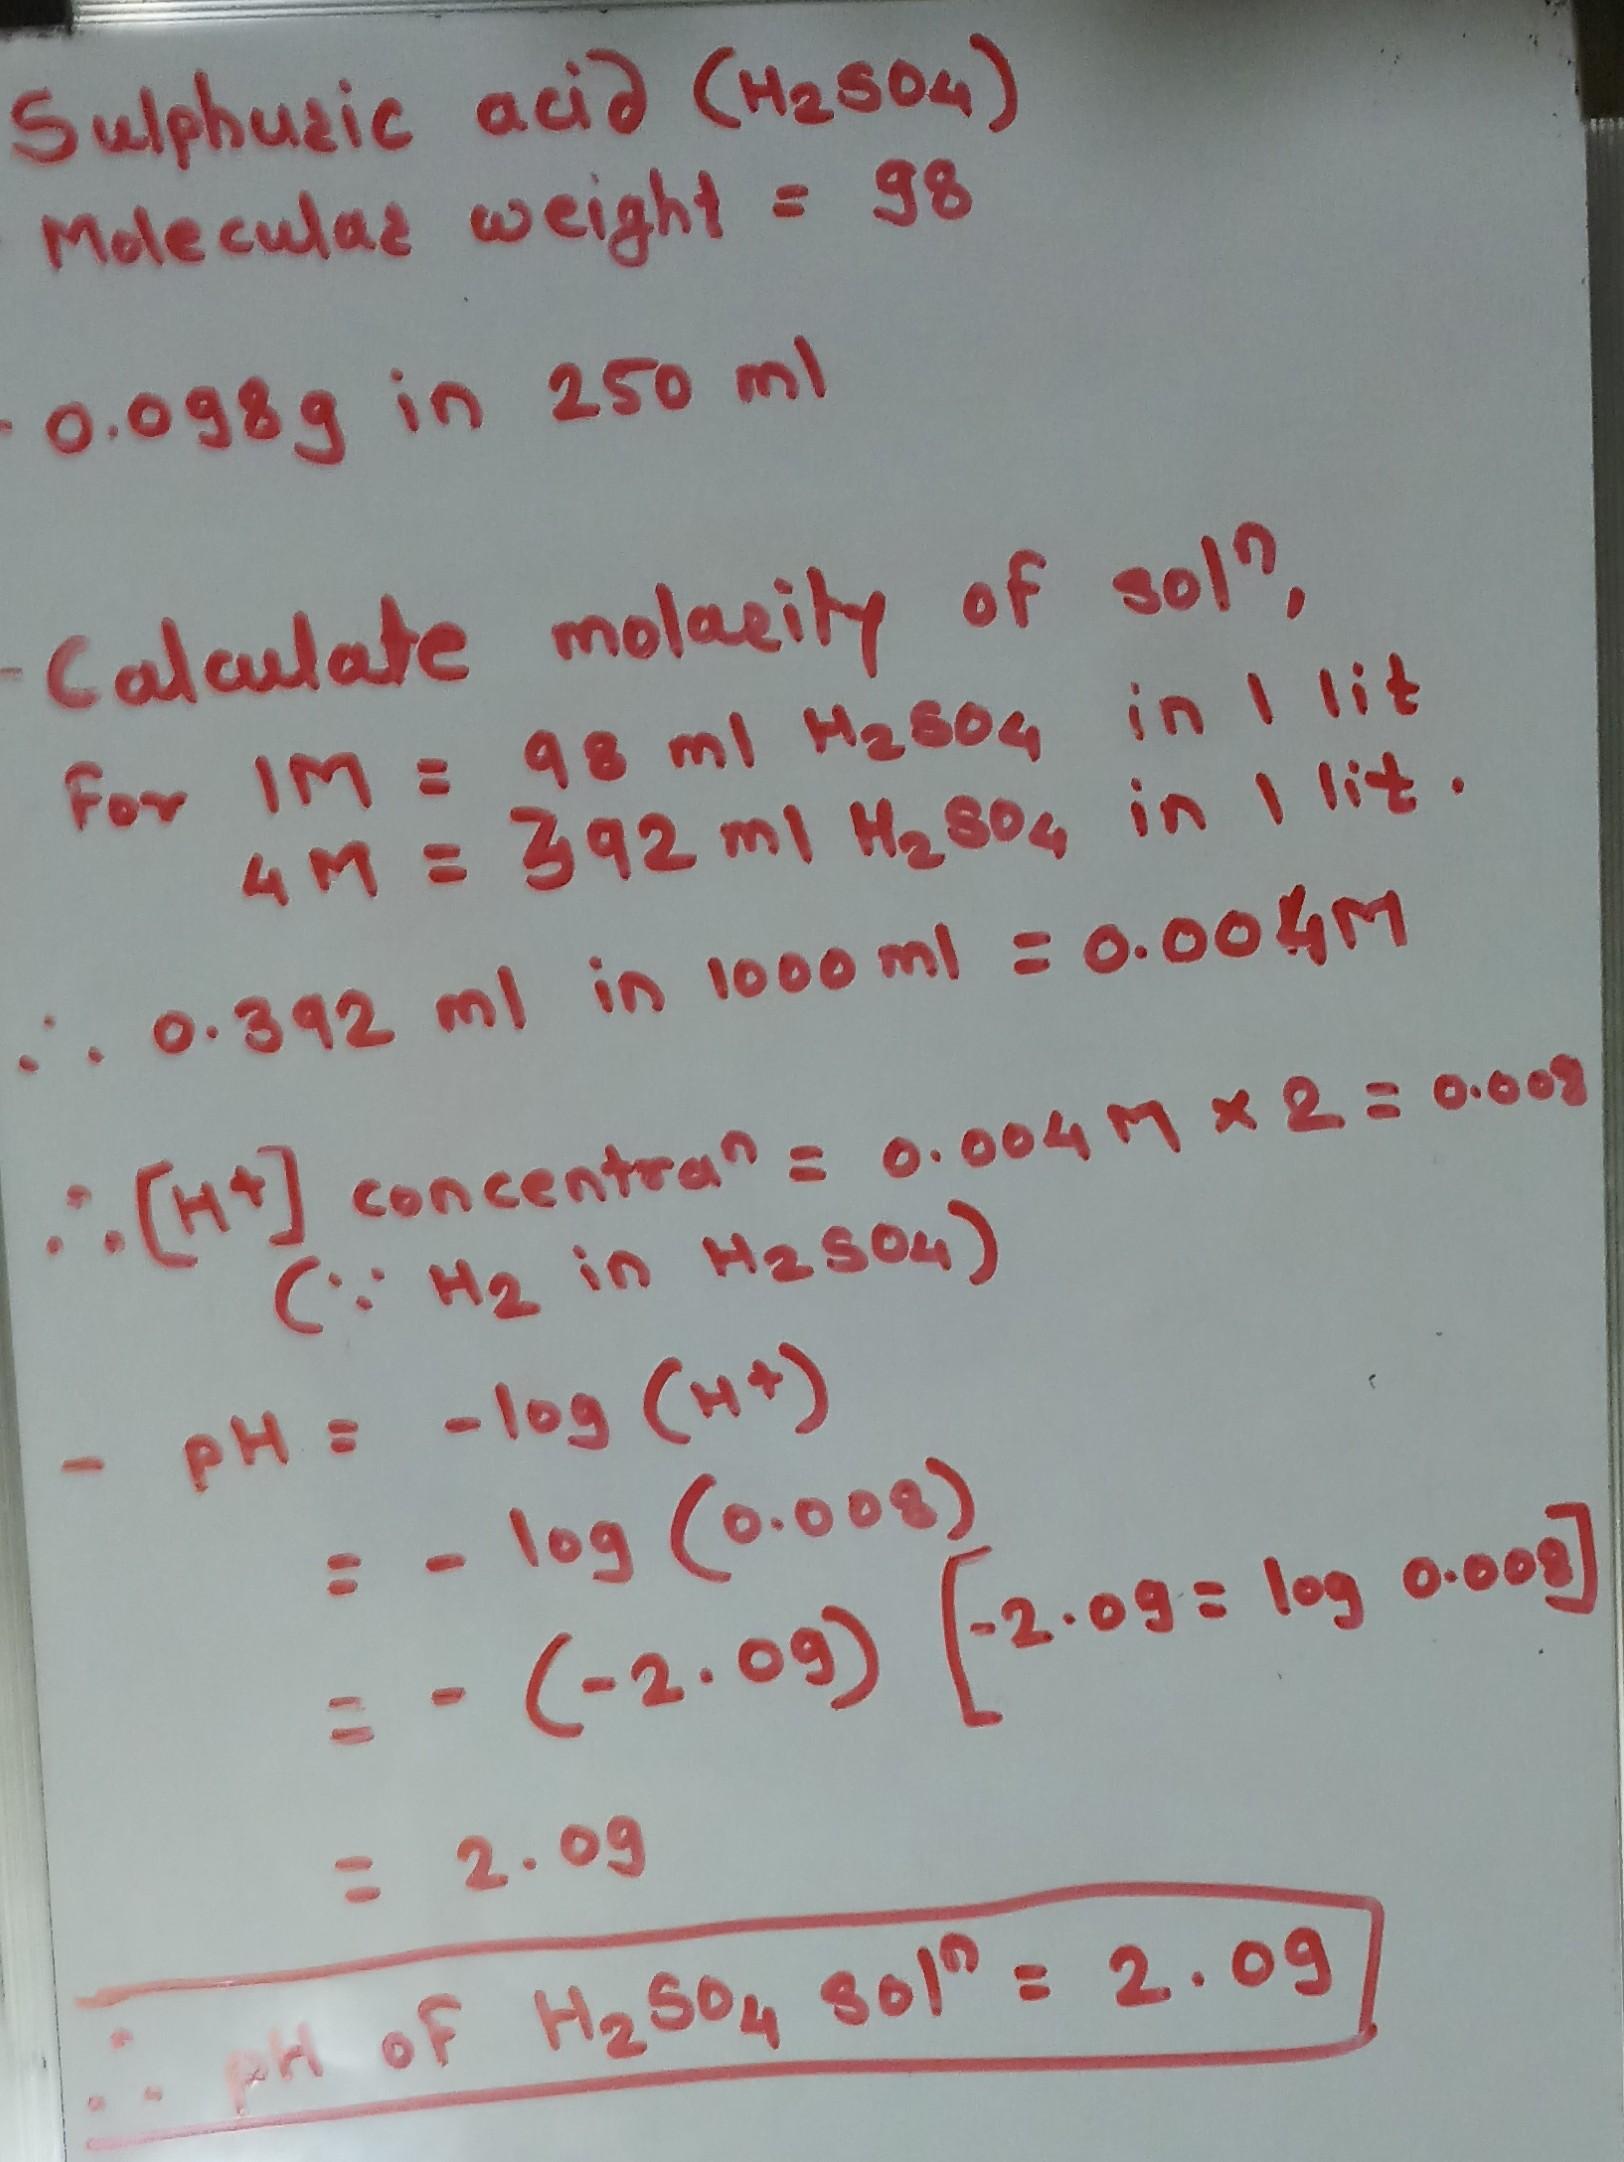 Sulphuric acid (H2SO4)
Molecular weight = 98
- 0.098g in 250 ml
- Calculate molarity of solⁿ,
For 1M = 98 ml H2SO4 in 1 lit
4M = 392 ml H2SO4 in 1 lit.
∴ 0.392 ml in 1000 ml = 0.004M
∴ [H+] concentraⁿ = 0.004 M × 2 = 0.008
(∵ H2 in H2SO4)
- pH = -log (H+)
= - log (0.008)
= - (-2.09) [-2.09 = log 0.008]
= 2.09
∴ pH of H2SO4 solⁿ = 2.09